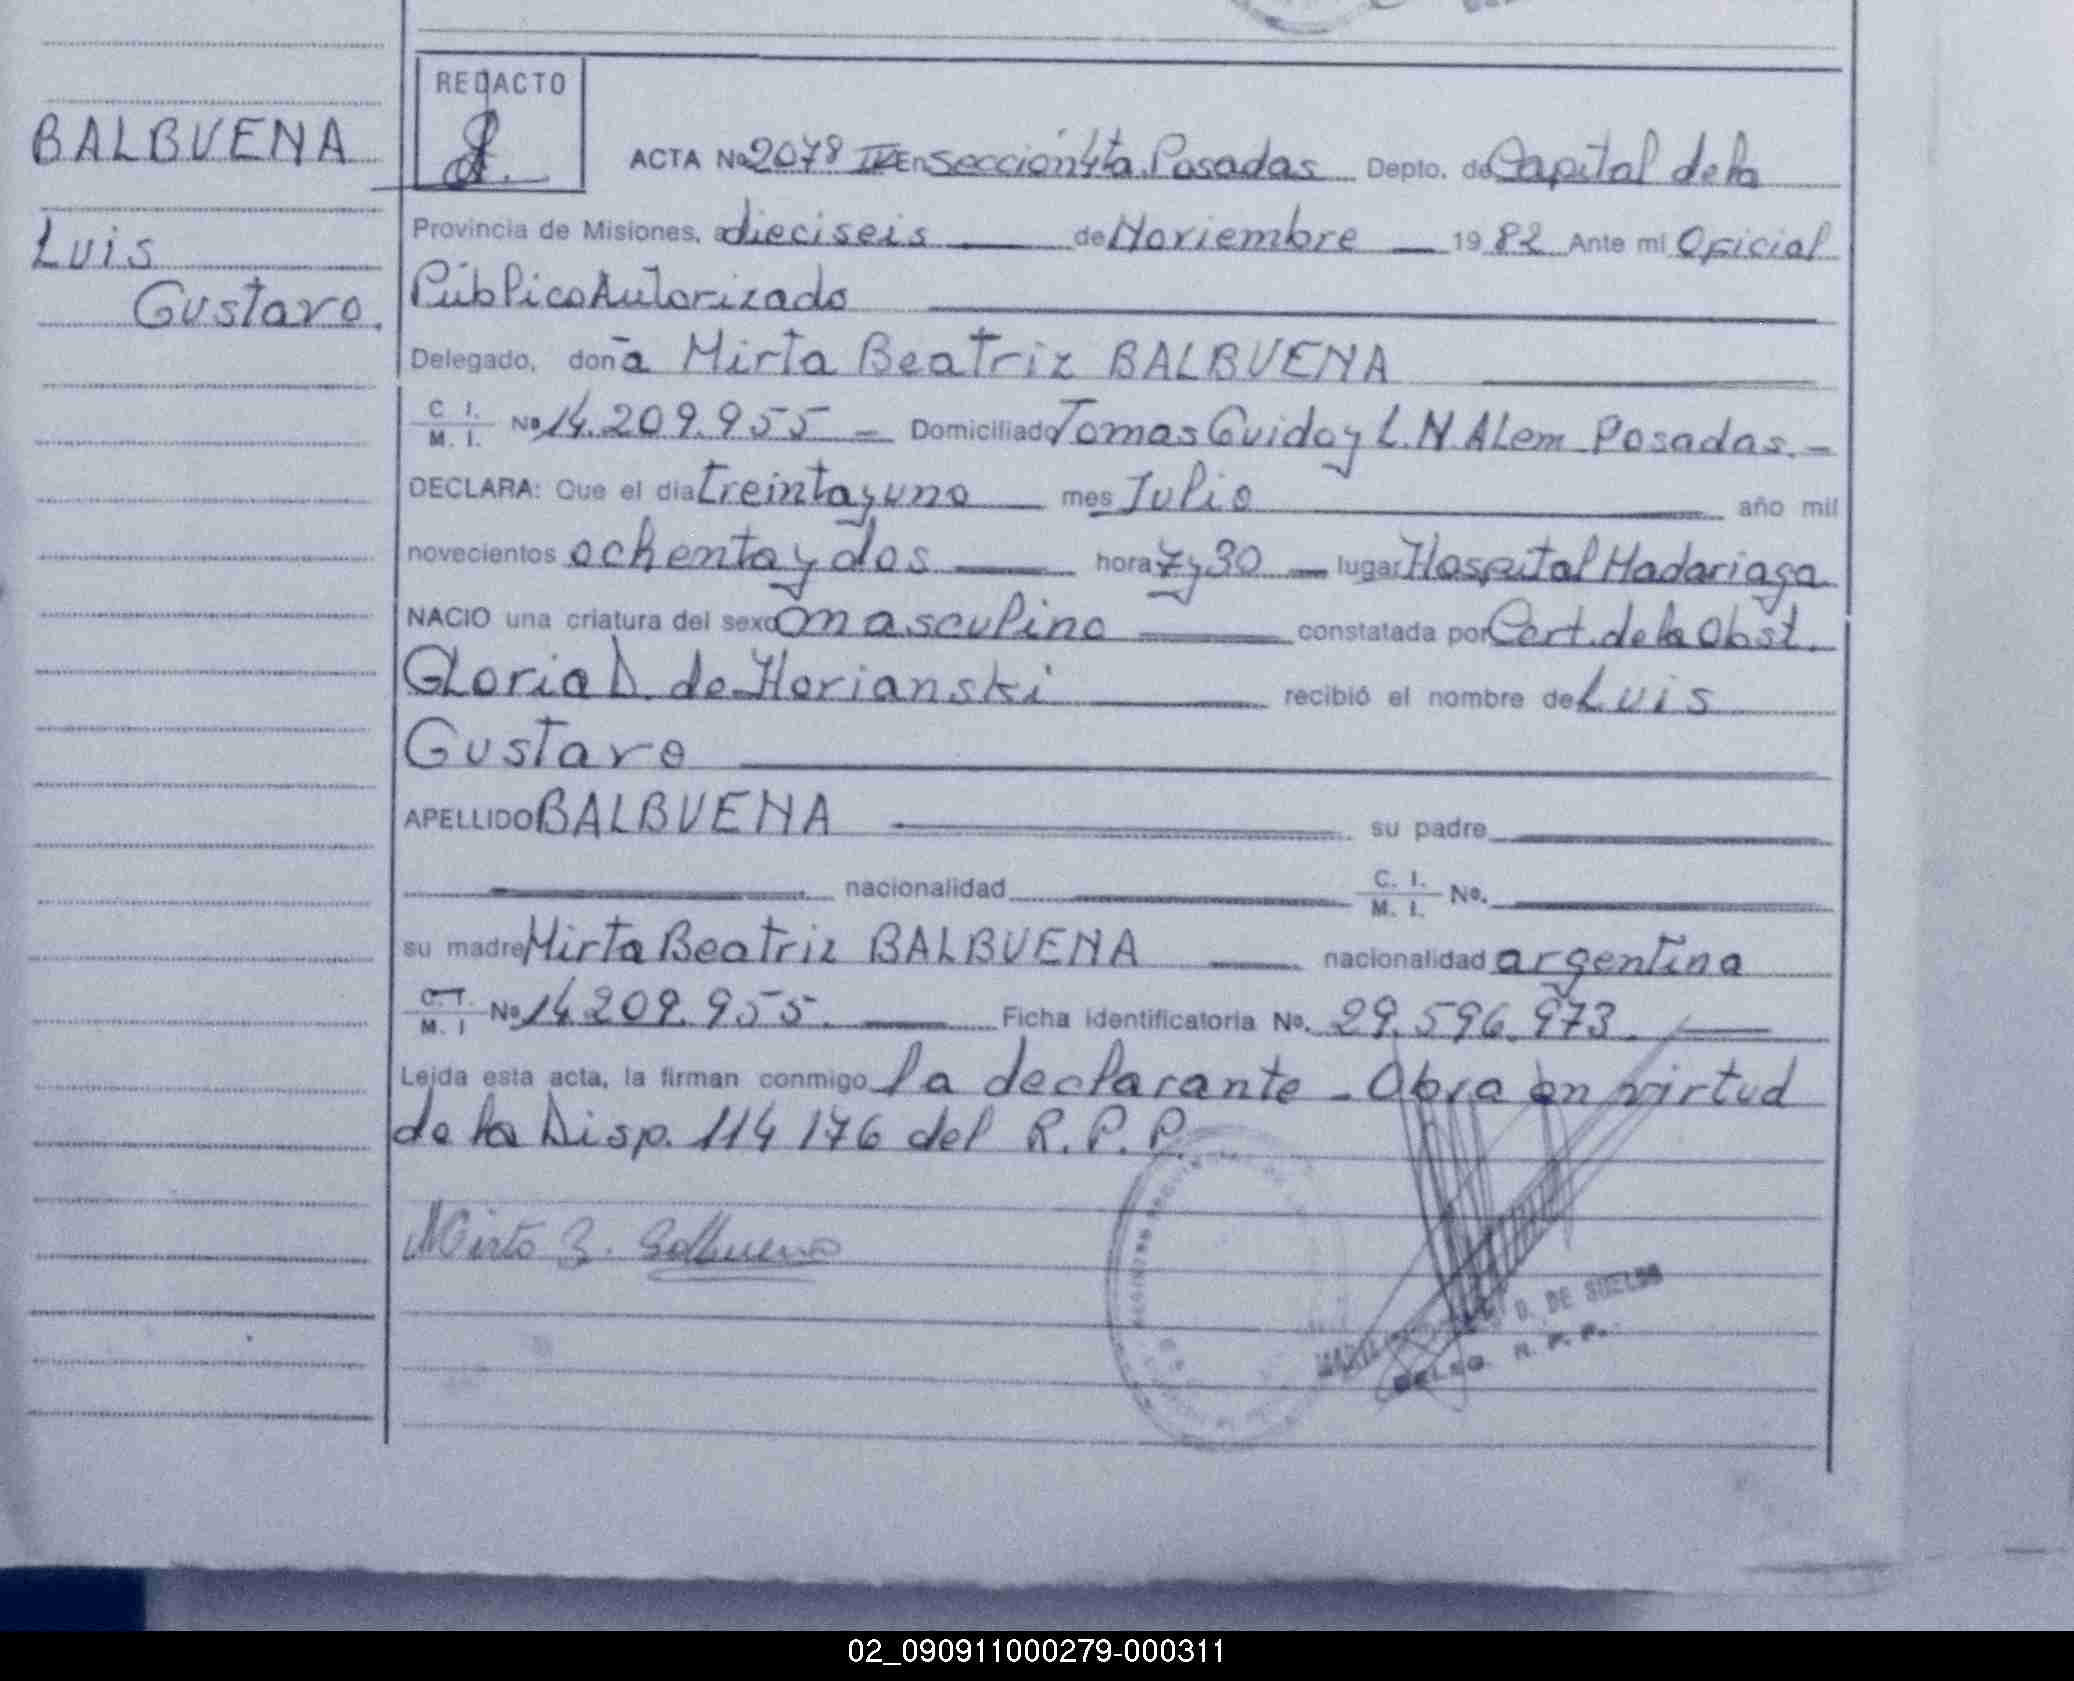 BALBUENA
Luis
Gustavo.
REDACTO
ACTA No 2078 IV En Sección 4ta. Posadas Depto. de Capital de la
Provincia de Misiones, a dieciseis de Noviembre 1982 Ante mi Oficial
Público Autorizado
Delegado, doña Mirta Beatriz BALBUENA
C. I.
M. I. No 14.209.955 - Domiciliado Tomas Guido y L. N ALem Posadas. -
DECLARA: Que el dia treinta y uno mes Julio año mil
novecientos ochenta y dos hora 7 y 30 lugar Hospital Madariaga
NACIO una criatura del sexo masculino constatada por Cert. de la Obst.
Gloria D. de Horianski recibió el nombre de Luis
Gustavo
APELLIDO BALBUENA su padre
nacionalidad C. I.
M. I. No.
su madre Mirta Beatriz BALBUENA nacionalidad argentina
C. I.
M. I No 14.209.955. Ficha identificatoria No. 29.596.973.
Leida esta acta, la firman conmigo la declarante - Obra en virtud
de la Disp. 114/76 del R. P. P.
Mirta B. Balbuena
D. DE SUELDO
DELEG. R. P. P.
02_090911000279-000311